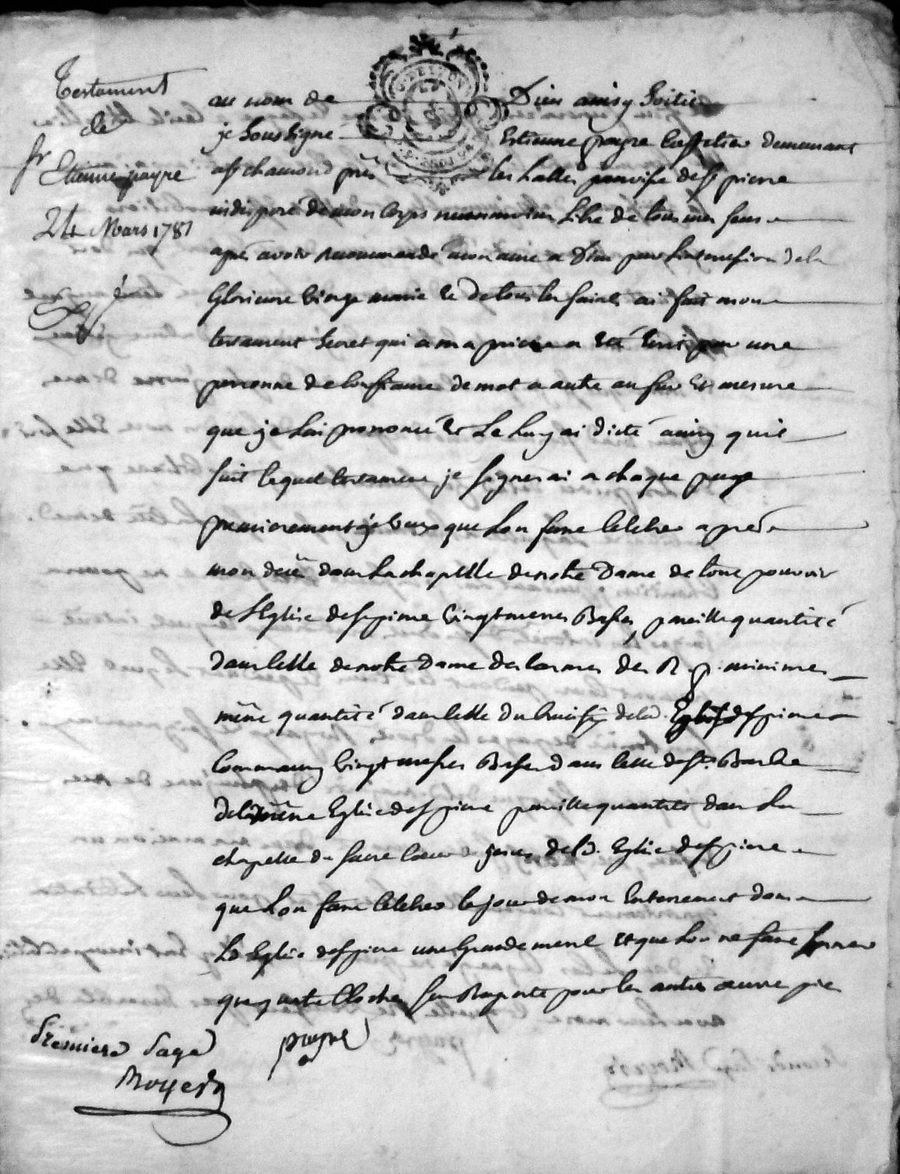 Testament
de
sr Etienne payre
24 Mars 1781
au nom de Dieu ainsy Soitil
je Soussigné Estienne payre Caffetier demeurant
a st chamond près les halles parroisse de st pierre
indisposé de mon Corps neanmoins libre de tous mes sens
après avoir recommandé mon ame a Dieu par lintercession de la
Glorieuse Vierge marie et de tous les saints ai fait mon
testament Secret qui a ma priere a été Ecrit par une
personne de Confiance de mot a autre au fur Et mesure
que je lai prononcé et le luy ai dicté ainsy quil
suit lequel testament je signerai a chaque page
premierement je veux que Lon fasse Celebrer après
mon decès dans La chapelle de notre Dame de tout pouvoir
de lEglise de st pierre Vingt messes Basses, pareille quantité
dans Celle de notre dame des larmes des R. p. minimes
même quantité dans Celle du Crucifix de lad. Eglise de st pierre
Vingt messes Basses dans Celle de ste Barbe
de la même Eglise de st pierre pareille quantité dans La
chapelle du Sacré Coeur de jesus de lad. Eglise de st pierre
que Lon fasse Celebrer le jour de mon Enterrement dans
Lad Eglise de st pierre une Grande messe et que Lon ne fasse sonner
que quatre Cloches, sen Raporte pour les autres oeuvre pie
payre
premiere page